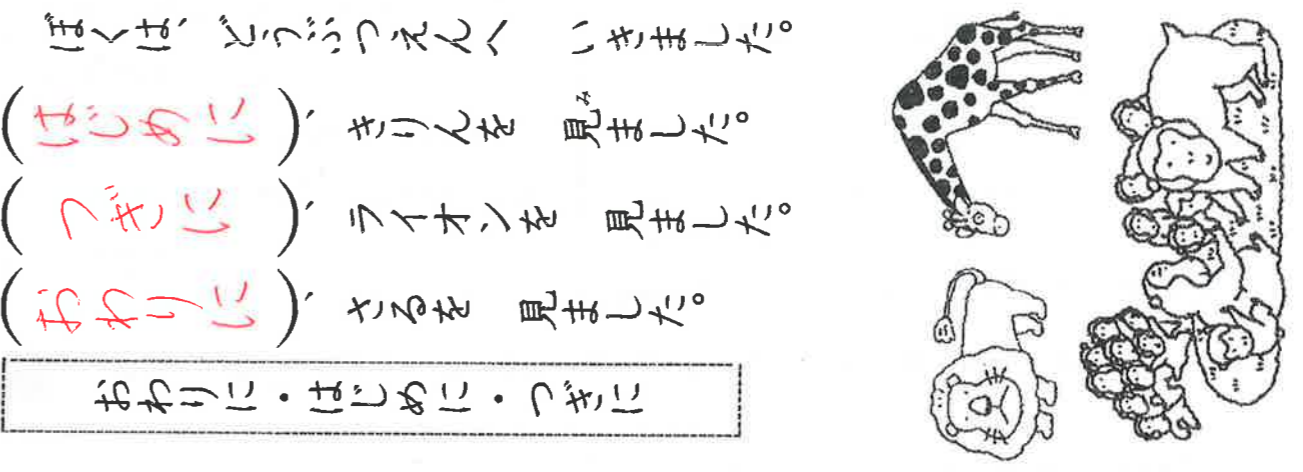 ぼくは、どうぶつえんへ いきました。
(はじめに)、きりんを 見ました。
み
(つぎに)、ライオンを 見ました。
(おわりに)、さるを 見ました。
おわりに・はじめに・つぎに